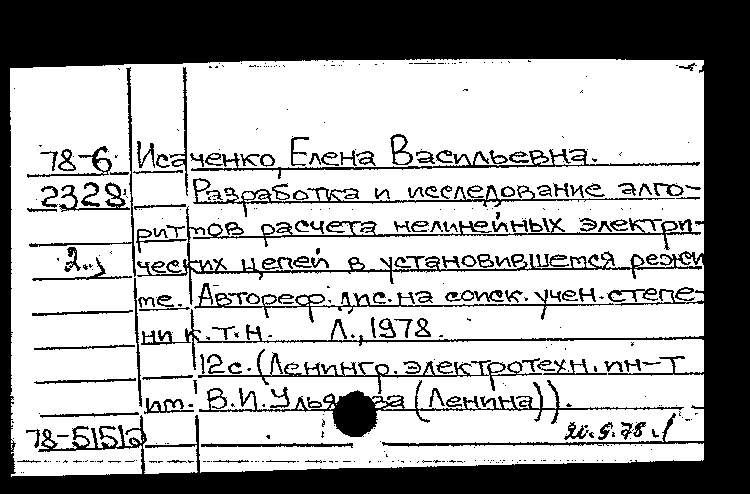 78-6 Исаченко, Елена Васильевна.
2328 Разработка и исследование алго-
ритмов расчета нелинейных электри-
ческих цепей в установившемся режи
ме. Автореф. дис. на соиск. учен. степе-
ни к.т.н. Л., 1978.
12с. (Ленингр. электротехн. ин-т
им. В.И. Ульянова (Ленина)).
78-5151